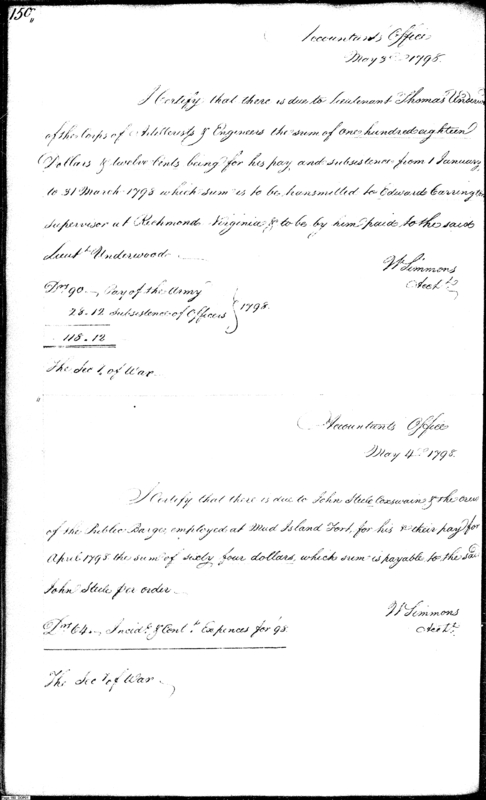 150
Accountants Office
May 3d 1798.
I Certify that there is due to Lieutenant Thomas Underwood
of the Corps of Artillerists & Engineers the sum of one hundred eighteen
Dollars & twelve Cents being for his pay, and subsistence from 1 January
to 31 March 1798 which sum is to be transmitted to Edward Carrington
supervisor at Richmond Virginia & to be by him paid to the said
Lieut. Underwood
Drs 90 Pay of the Army
28.12 Subsistence of Officers } 1798.
118.12
The Secy. of War
W Simmons
Acct.
Accountants Office
May 4th 1798.
I Certify that there is due to John Steele Coxswain & the crew
of the Public Barge, employed at Mud Island Fort, for his & their pay for
April 1798 the sum of sixty four dollars, which sum is payable to the said
John Steele per order
Drs 64 Incidl. & Contt. Expences for 98
The Secy of War
W Simmons
Acct.